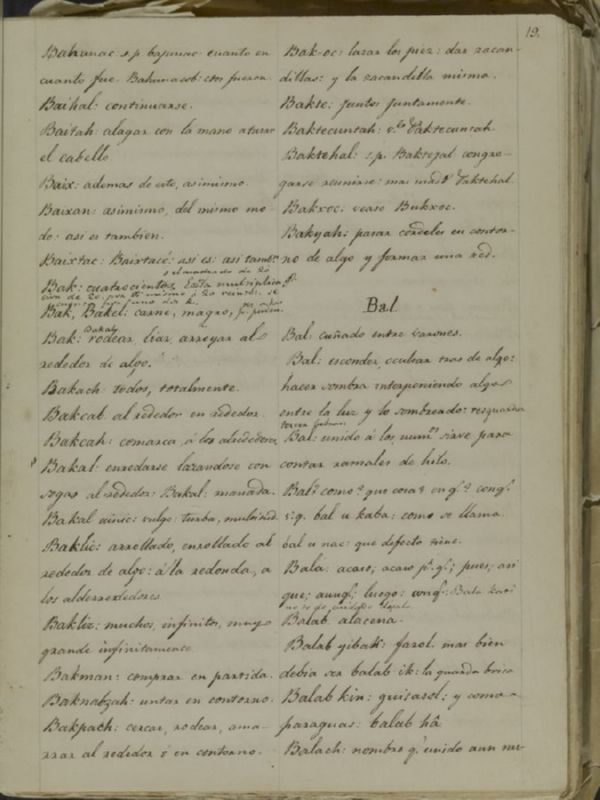 19.
Bahunac s.p. bajunac. cuanto en
cuanto fue. Bahunacob: estos fueron.
Baihal: continuarse.
Baitah: alagar con la mano
el cabello
Baix: ademas de esto, asimismo.
Baixan: asimismo, del mismo mo-
do: asi es tambien.
Baixtac: Baixtacé: asi es: asi tambn
Bak: cuatrocientos,
Bak, Bakel: carne, magro,
Bak: rodear, liar, arrojar al
rededor de algo.
Bakach todos, totalmente.
Bakcab al rededor en rededor.
Bakcah: comarca, á los alrededores,
Bakal enredarse lazandose con
sogas al rededor: Bakal: manada.
Bakal uinic: vulgo: turba, multitud
Baklic: arrollado, enrollado al
rededor de algo: á la redonda, a
los alderrededores
Baktiz: muchos, infinitos, muy
grande infinitamente
Bakman: comprar en partida.
Baknabzah: untar en contorno.
Bakpach: cercar, rodear, ama-
rrar al rededor ó en contorno.
Bak-oc: lazar los piez: dar zacan-
dillas: y la zacandilla misma.
Bakte: juntos juntamente.
Baktecuntah: Paktecuntah
Baktehal: s.p. Baktejal congre-
garse reunirse: mas Paktehal.
Bakxoc: vease Bukxoc.
Bakyah: parar cordeles en contor-
no de algo y formar una red.
Bal
Bal: cuñado entre varones.
Bal: esconder, ocultar tras de algo:
hacer sombra interponiendo algo
entre la luz y lo sombreado: resguardar
Bal: unido á los numos sirve para
contar ramales de hilo.
Bal? como? que cosa? en
v.g. bal u kaba: como se llama.
bal u nac: que defecto tiene.
Bala: acaso; acaso pues, asi
que; aunq. luego: Bala
Balab alacena.
Balab yibak: farol. mas bien
debia ser balab ik: la guarda brisa
Balab kin: quitasol: y como
paraguas: balab há
Balach: nombre q. unido aun nu-